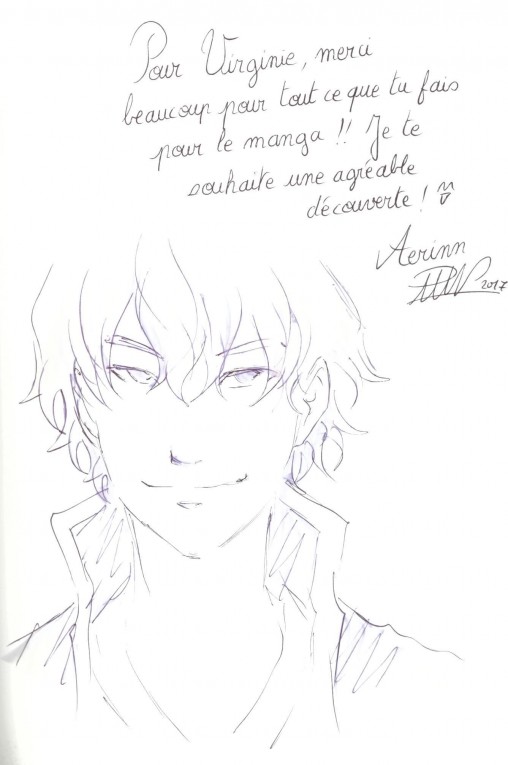 Pour Virginie, merci
beaucoup pour tout ce que tu fais
pour le manga !! Je te
souhaite une agréable
découverte !
Aerinn
2017